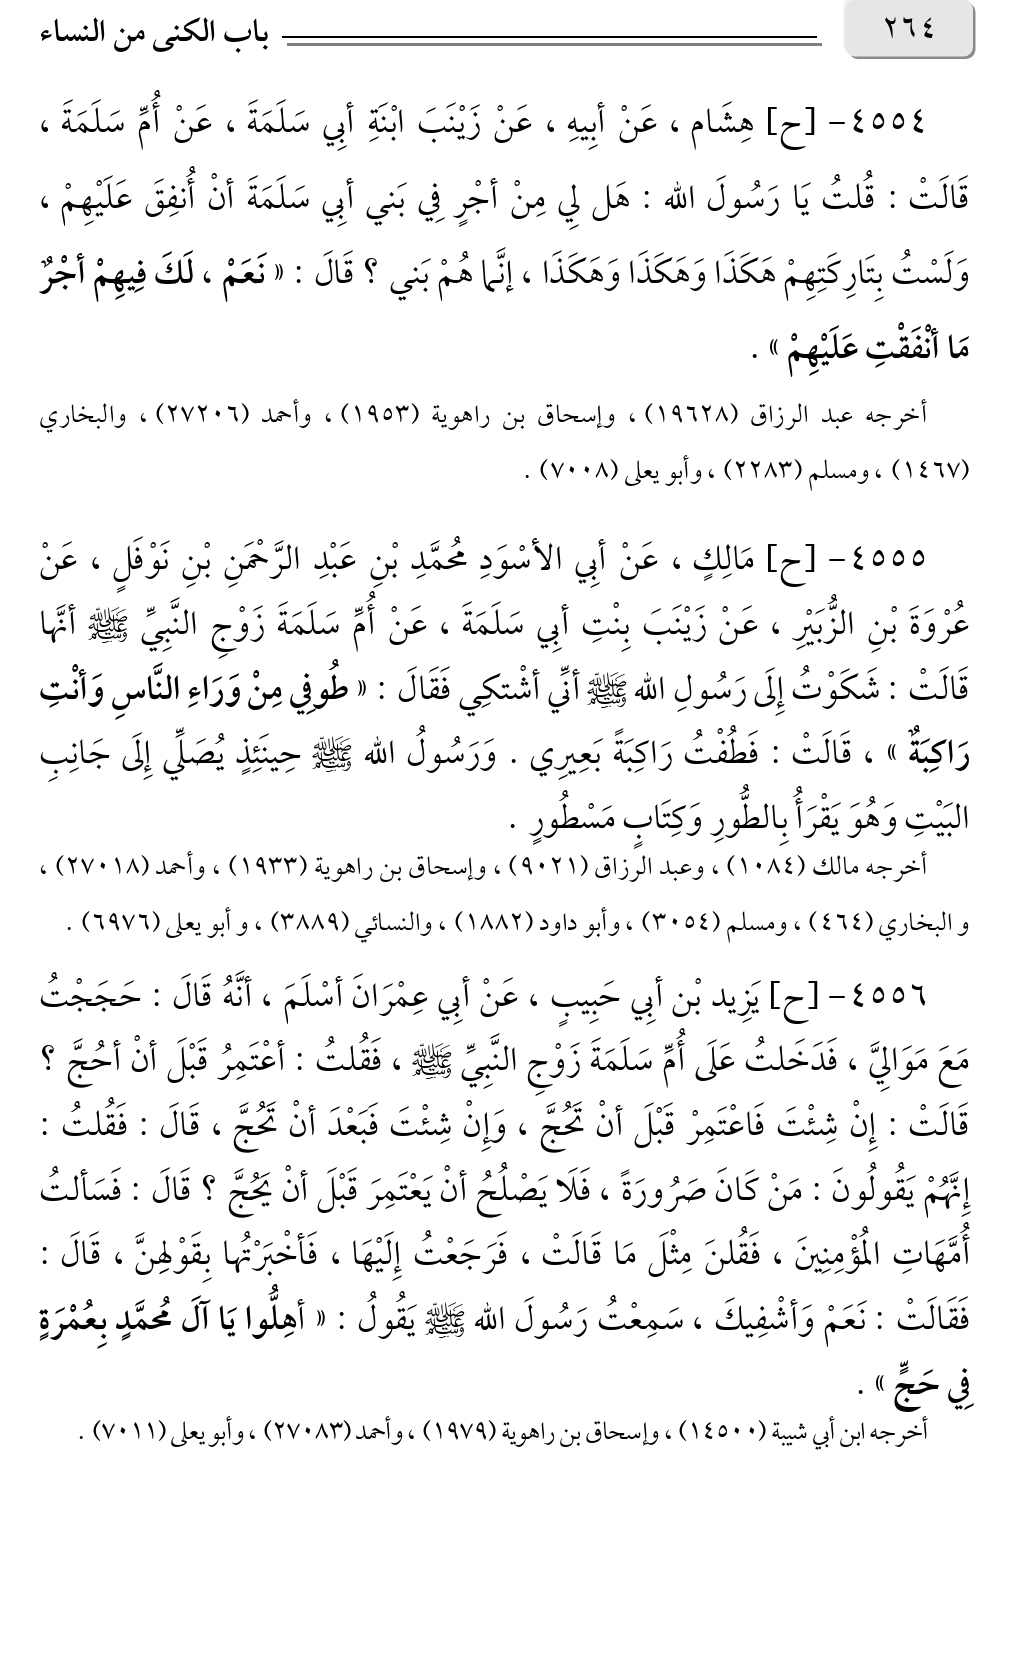 ٢٦٤ باب الكنى من النساء
٤٥٥٤- [ح] هِشَام ، عَنْ أبِيهِ ، عَنْ زَيْنَبَ ابْنَةِ أبِي سَلَمَةَ ، عَنْ أُمِّ سَلَمَةَ ،
قَالَتْ : قُلتُ يَا رَسُولَ الله : هَل لِي مِنْ أجْرٍ فِي بَني أبِي سَلَمَةَ أنْ أُنفِقَ عَلَيْهِمْ ،
وَلَسْتُ بِتَارِكَتِهِمْ هَكَذَا وَهَكَذَا وَهَكَذَا ، إنَّما هُمْ بَني ؟ قَالَ : « نَعَمْ ، لَكَ فِيهِمْ أجْرٌ
مَا أنْفَقْتِ عَلَيْهِمْ » .
أخرجه عبد الرزاق (١٩٦٢٨) ، وإسحاق بن راهوية (١٩٥٣) ، وأحمد (٢٧٢٠٦) ، والبخاري
(١٤٦٧) ، ومسلم (٢٢٨٣) ، وأبو يعلى (٧٠٠٨) .
٤٥٥٥- [ح] مَالِكٍ ، عَنْ أبِي الأسْوَدِ مُحمَّدِ بْنِ عَبْدِ الرَّحْمَنِ بْنِ نَوْفَلٍ ، عَنْ
عُرْوَةَ بْنِ الزُّبَيْرِ ، عَنْ زَيْنَبَ بِنْتِ أبِي سَلَمَةَ ، عَنْ أُمِّ سَلَمَةَ زَوْجِ النَّبِيِّ ﷺ أنَّها
قَالَتْ : شَكَوْتُ إلَى رَسُولِ الله ﷺ أنِّي أشْتكِي فَقَالَ : « طُوفِي مِنْ وَرَاءِ النَّاسِ وَأنْتِ
رَاكِبَةٌ » ، قَالَتْ : فَطُفْتُ رَاكِبَةً بَعِيرِي . وَرَسُولُ الله ﷺ حِينَئِذٍ يُصَلِّي إلَى جَانِبِ
البَيْتِ وَهُوَ يَقْرَأُ بِالطُّورِ وَكِتَابٍ مَسْطُورٍ .
أخرجه مالك (١٠٨٤) ، وعبد الرزاق (٩٠٢١) ، وإسحاق بن راهوية (١٩٣٣) ، وأحمد (٢٧٠١٨) ،
و البخاري (٤٦٤) ، ومسلم (٣٠٥٤) ، وأبو داود (١٨٨٢) ، والنسائي (٣٨٨٩) ، و أبو يعلى (٦٩٧٦) .
٤٥٥٦- [ح] يَزِيد بْن أبِي حَبِيبٍ ، عَنْ أبِي عِمْرَانَ أسْلَمَ ، أنَّهُ قَالَ : حَجَجْتُ
مَعَ مَوَالِيَّ ، فَدَخَلتُ عَلَى أُمِّ سَلَمَةَ زَوْجِ النَّبِيِّ ﷺ ، فَقُلتُ : أعْتَمِرُ قَبْلَ أنْ أحُجَّ ؟
قَالَتْ : إِنْ شِئْتَ فَاعْتَمِرْ قَبْلَ أنْ تَحُجَّ ، وَإِنْ شِئْتَ فَبَعْدَ أنْ تَحُجَّ ، قَالَ : فَقُلتُ :
إِنَّهُمْ يَقُولُونَ : مَنْ كَانَ صَرُورَةً ، فَلَا يَصْلُحُ أنْ يَعْتَمِرَ قَبْلَ أنْ يَحُجَّ ؟ قَالَ : فَسَألتُ
أُمَّهَاتِ المُؤْمِنِينَ ، فَقُلنَ مِثْلَ مَا قَالَتْ ، فَرَجَعْتُ إِلَيْهَا ، فَأخْبَرْتُها بِقَوْلهِنَّ ، قَالَ :
فَقَالَتْ : نَعَمْ وَأشْفِيكَ ، سَمِعْتُ رَسُولَ الله ﷺ يَقُولُ : « أهِلُّوا يَا آلَ مُحمَّدٍ بِعُمْرَةٍ
فِي حَجٍّ » .
أخرجه ابن أبي شيبة (١٤٥٠٠) ، وإسحاق بن راهوية (١٩٧٩) ، وأحمد (٢٧٠٨٣) ، وأبو يعلى (٧٠١١) .